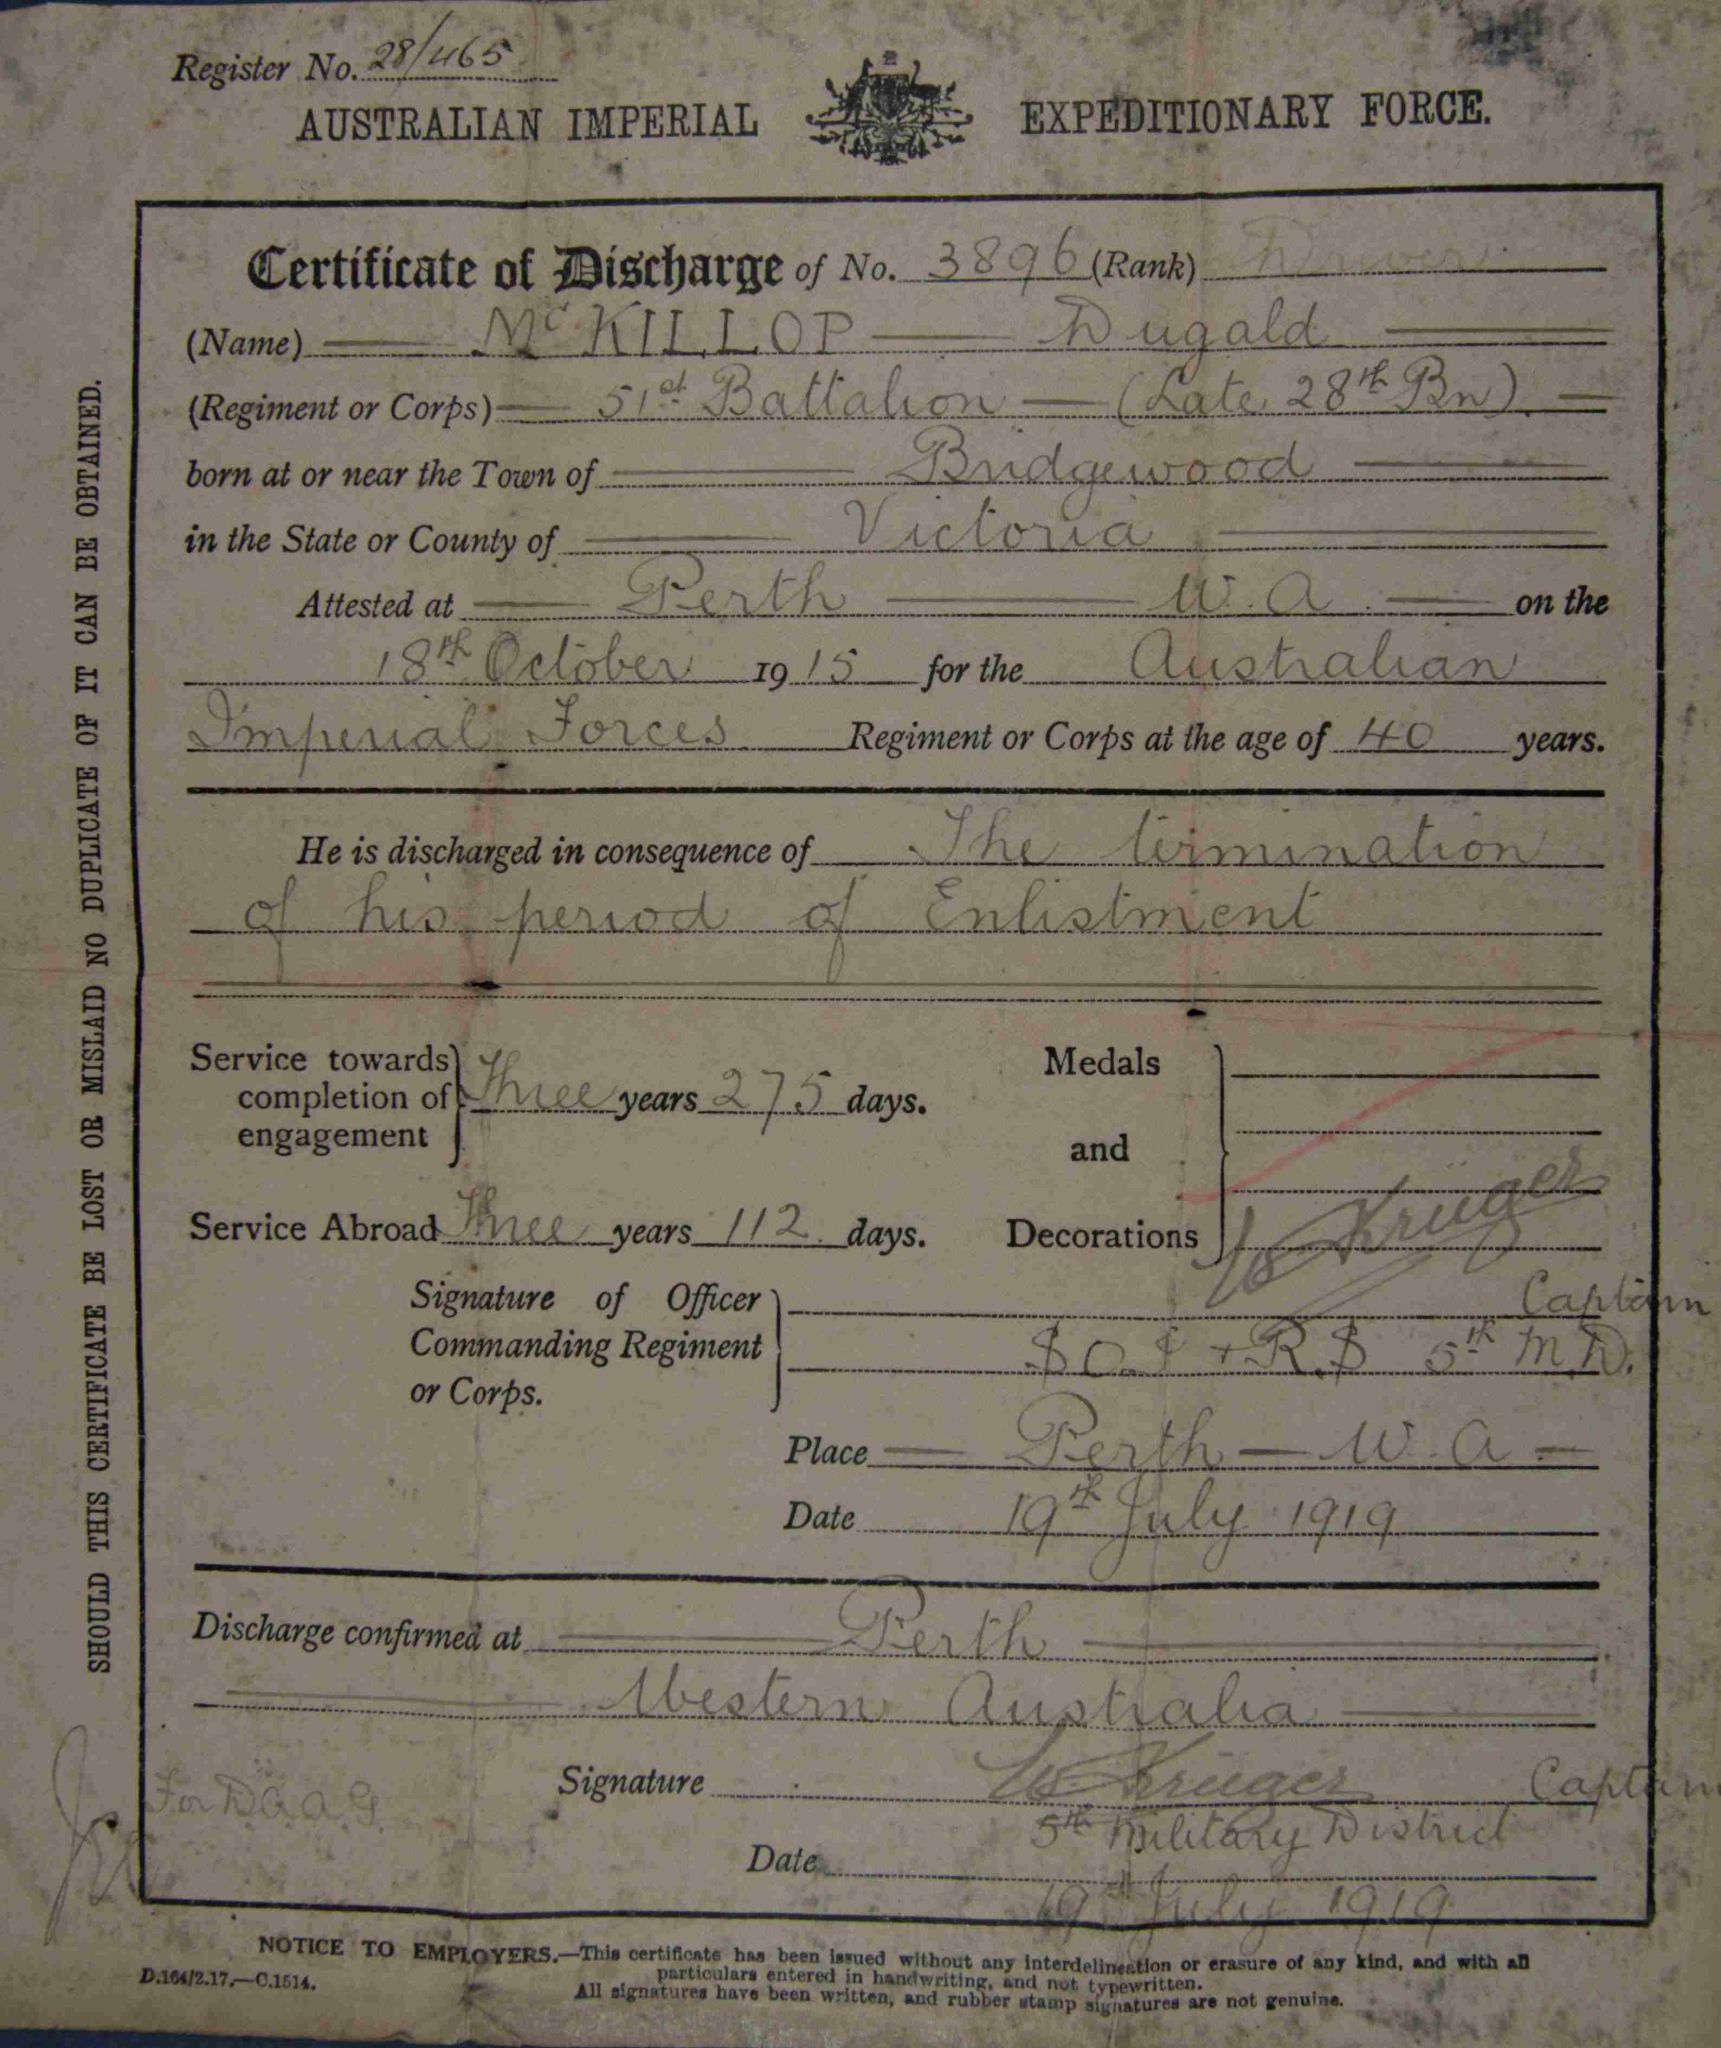 Register No. 28/465
AUSTRALIAN IMPERIAL EXPEDITIONARY FORCE.
Certificate of Discharge of No. 3896 (Rank) Driver
(Name) McKILLOP Dugald
(Regiment or Corps) 51st Battalion (Late 28th Bn).
born at or near the Town of Bridgewood
in the State or County of Victoria
Attested at Perth W.A. on the
18th October 1915 for the Australian
Imperial Forces Regiment or Corps at the age of 40 years.
He is discharged in consequence of The termination
of his period of Enlistment
Service towards completion of engagement Three years 275 days.
Medals and Decorations
Service Abroad Three years 112 days.
W Krüger
Signature of Officer Commanding Regiment or Corps. Captain
S.O.I + R.S 5th M.D.
Place Perth W.A
Date 19th July 1919
Discharge confirmed at Perth
Western Australia
Signature W. Krüger Captain
For D.A.A.G.
5th Military District
Date 19th July 1919
NOTICE TO EMPLOYERS.—This certificate has been issued without any interdelineation or erasure of any kind, and with all
particulars entered in handwriting, and not typewritten.
All signatures have been written, and rubber stamp signatures are not genuine.
D.164/2.17.—C.1514.
SHOULD THIS CERTIFICATE BE LOST OR MISLAID NO DUPLICATE OF IT CAN BE OBTAINED.